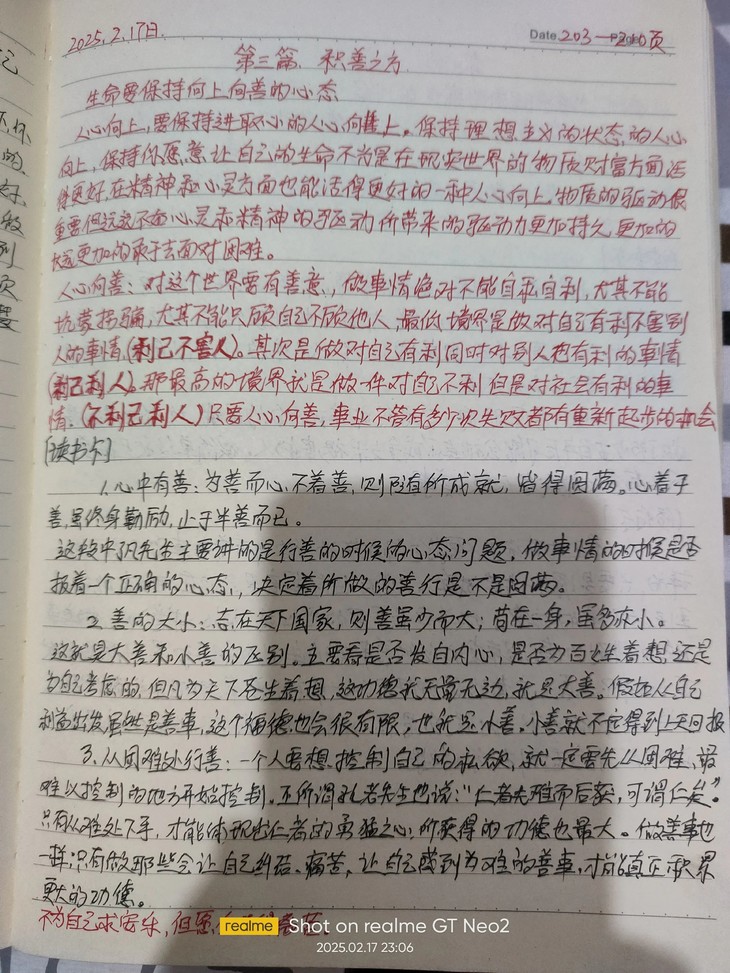 2025.2.17日. Date 203—210页
第三篇. 积善之方
生命要保持向上向善的心态
人心向上,要保持进取心的人心向上。保持理想主义的状态的人心
向上,保持你愿意让自己的生命不光是在现实世界的物质财富方面活
得更好,在精神和心灵方面也能活得更好的一种人心向上,物质的驱动很
重要但远远不如心灵和精神的驱动所带来的驱动力更加持久更加的
更加的敢于去面对困难。
人心向善:对这个世界要有善意,做事情绝对不能自私自利,尤其不能
坑蒙拐骗,尤其不能只顾自己不顾他人,最低境界是做对自己有利不害别
人的事情(利己不害人)。其次是做对自己有利同时对别人也有利的事情
(利己利人)。那最高的境界就是做一件对自己不利但是对社会有利的事
情.(不利己利人)只要人心向善,事业不管有多少次失败都有重新起步的机会
[读书卡]
1.心中有善:为善而心不着善,则随所成就,皆得圆满。心着于
善,虽终身勤励,止于半善而已。
这段中了凡先生主要讲的是行善的时候的心态问题,做事情的时候是否
抱着一个正确的心态,决定着所做的善行是不是圆满。
2.善的大小:志在天下国家,则善虽少而大;苟在一身,虽多亦小。
这就是大善和小善的区别。主要看是否发自内心,是否为百姓着想还是
为自己考虑的,但凡为天下苍生着想,这功德就无量无边,就是大善。假如从自己
利益出发虽然是善事,这个福德也会很有限,也就是小善。小善就不定得到上天回报
3.从困难处行善:一个人要想控制自己的私欲,就一定要先从困难,最
难以控制的地方开始控制。正所谓孔老先生也说:“仁者先难而后获,可谓仁矣。”
只有从难处下手,才能体现出仁者的勇猛之心,所获得的功德也最大。做善事也
一样,只有做那些会让自己纠结、痛苦,让自己感到为难的善事,才能真正积累
更大的功德。
不为自己求安乐,但愿
realme Shot on realme GT Neo2
2025.02.17 23:06